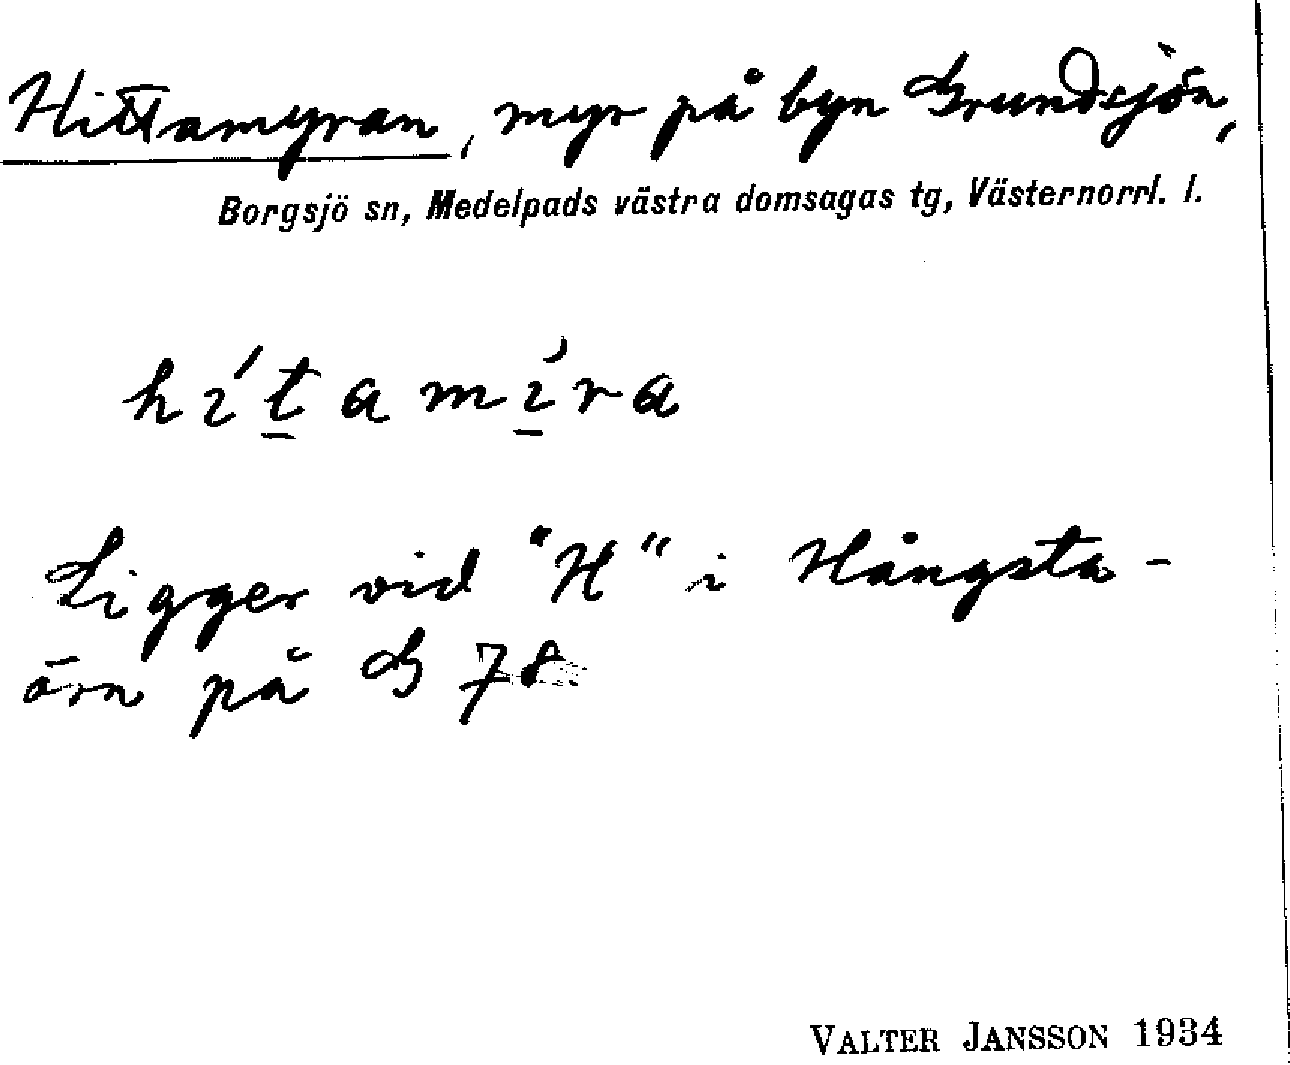 Hittamyran, myr på byn Grundsjön,
Borgsjö sn, Medelpads västra domsagas tg, Västernorrl. l.
hı́t̲amı̲́ra
Ligger vid "H" i Hångsta-
örn på G 78
VALTER JANSSON 1934